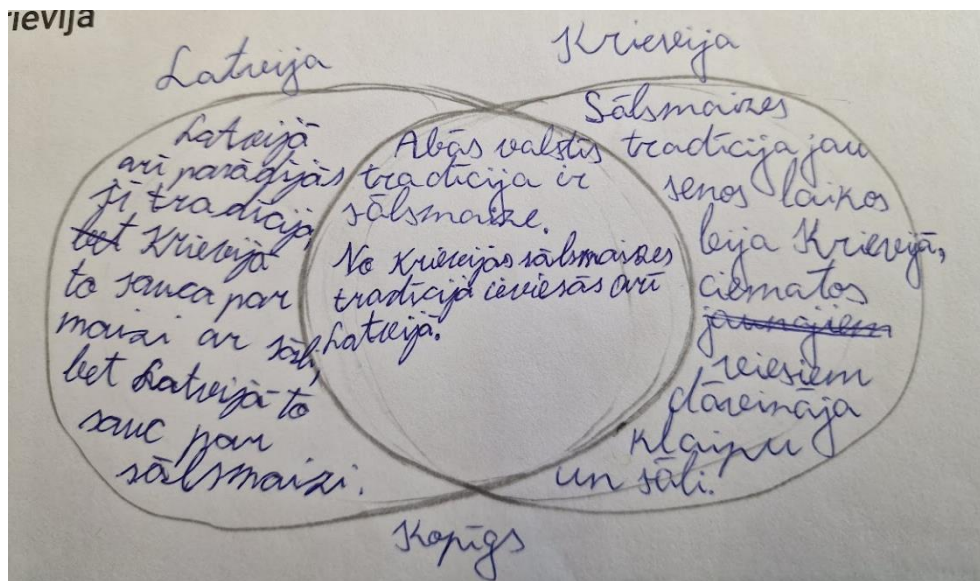 rievija
Latvija
Krievija
Latvijā
arī parādījās
šī tradīcija,
bet Krievijā
to sauca par
maizi ar sāli,
bet Latvijā to
sauc par
sālsmaizi.
Abās valstīs
tradīcija ir
sālsmaize.
No Krievijas sālsmaizes
tradīcija ieviesās arī
Latvijā.
Sālsmaizes
tradīcija jau
senos laikos
bija Krievijā,
ciematos
jaunajiem
viesiem
dāvināja
klaipu
un sāli.
Kopīgs